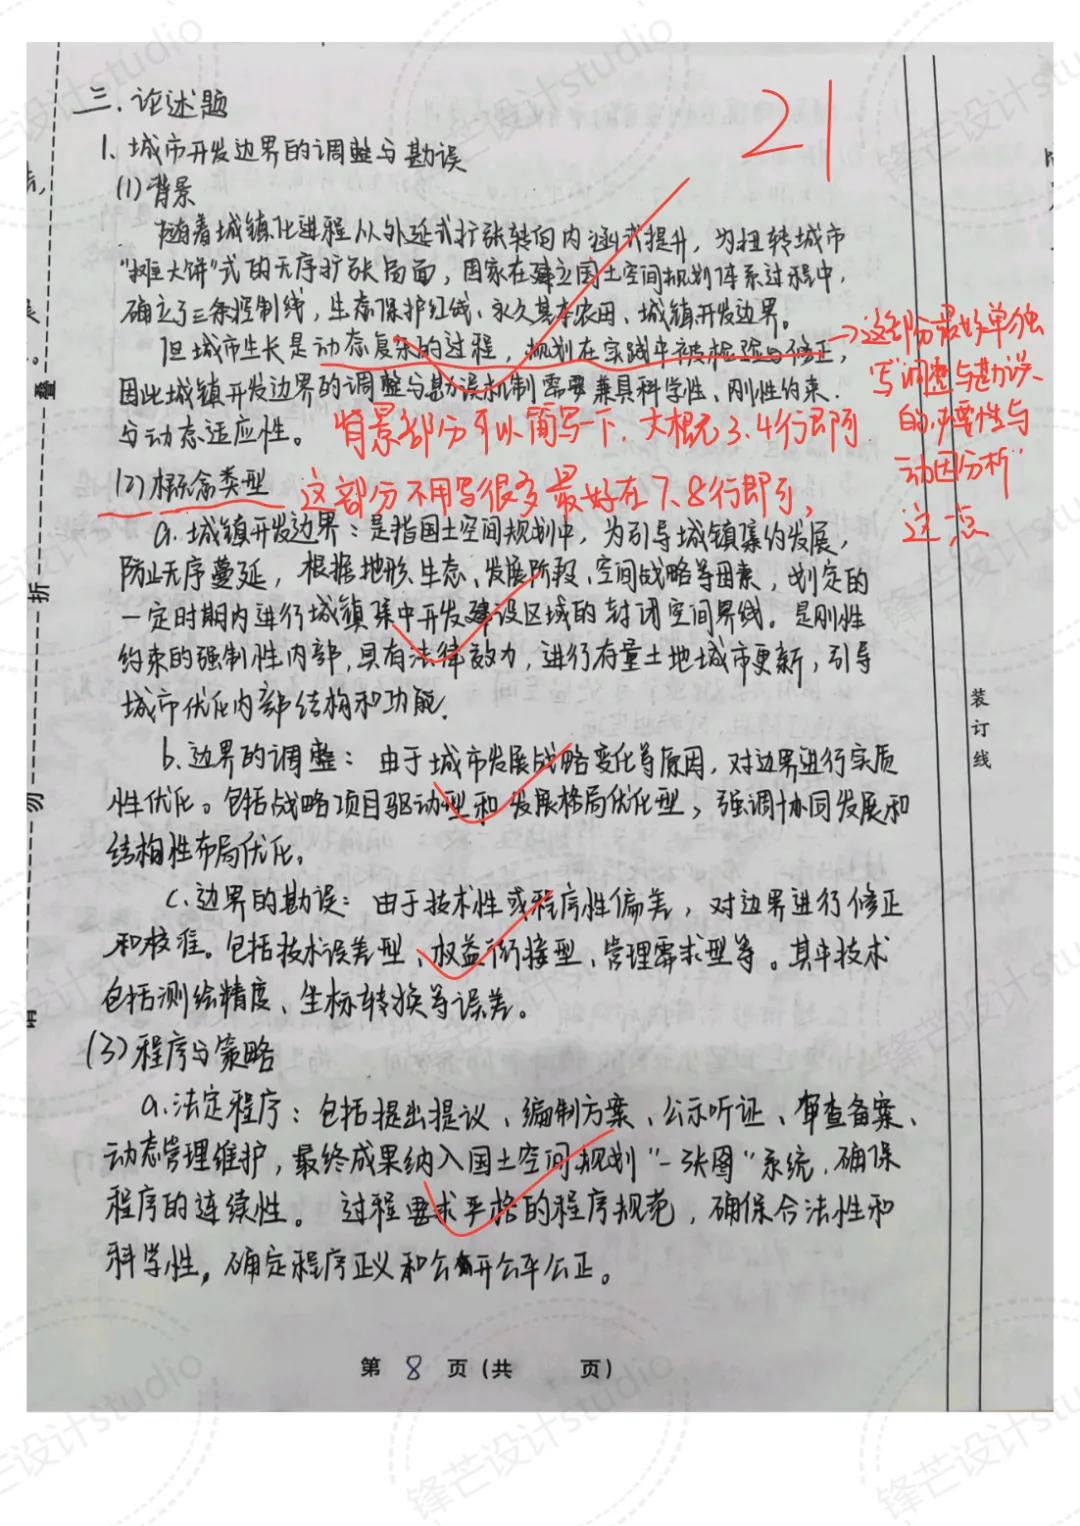 三.论述题
21
1.城市开发边界的调整与勘误
(1)背景
随着城镇化进程从外延式扩张转向内涵式提升，为扭转城市
“摊大饼”式的无序扩张局面，国家在建立国土空间规划体系过程中，
确立了三条控制线，生态保护红线、永久基本农田、城镇开发边界。
但城市生长是动态复杂的过程，规划在实践中被检验与修正，
因此城镇开发边界的调整与勘误机制需要兼具科学性、刚性约束、
与动态适应性。
→这部分最好单独
写“调整与勘误、
的必要性与
动因分析”
这点
背景部分可以简写一下，大概3.4行即可
(2)概念类型
这部分不用写很多最好在7、8行即可，
a.城镇开发边界：是指国土空间规划中，为引导城镇集约发展，
防止无序蔓延，根据地形、生态、发展阶段、空间战略等因素，划定的
一定时期内进行城镇集中开发建设区域的封闭空间界线。是刚性
约束的强制性内部，具有法律效力，进行存量土地城市更新，引导
城市优化内部结构和功能.
b.边界的调整：由于城市发展战略变化等原因，对边界进行实质
性优化。包括战略项目驱动型和发展格局优化型，强调协同发展和
结构性布局优化。
c.边界的勘误：由于技术性或程序性偏差，对边界进行修正
和校准。包括技术误差型、权益衔接型、管理需求型等。其中技术
包括测绘精度、坐标转换等误差。
(3)程序与策略
a.法定程序：包括提出提议、编制方案、公示听证、审查备案、
动态管理维护，最终成果纳入国土空间规划“一张图”系统，确保
程序的连续性。过程要求严格的程序规范，确保合法性和
科学性，确定程序正义和公开公平公正。
第 8 页（共 页）
叠
折
勿
装
订
线
锋芒设计studio